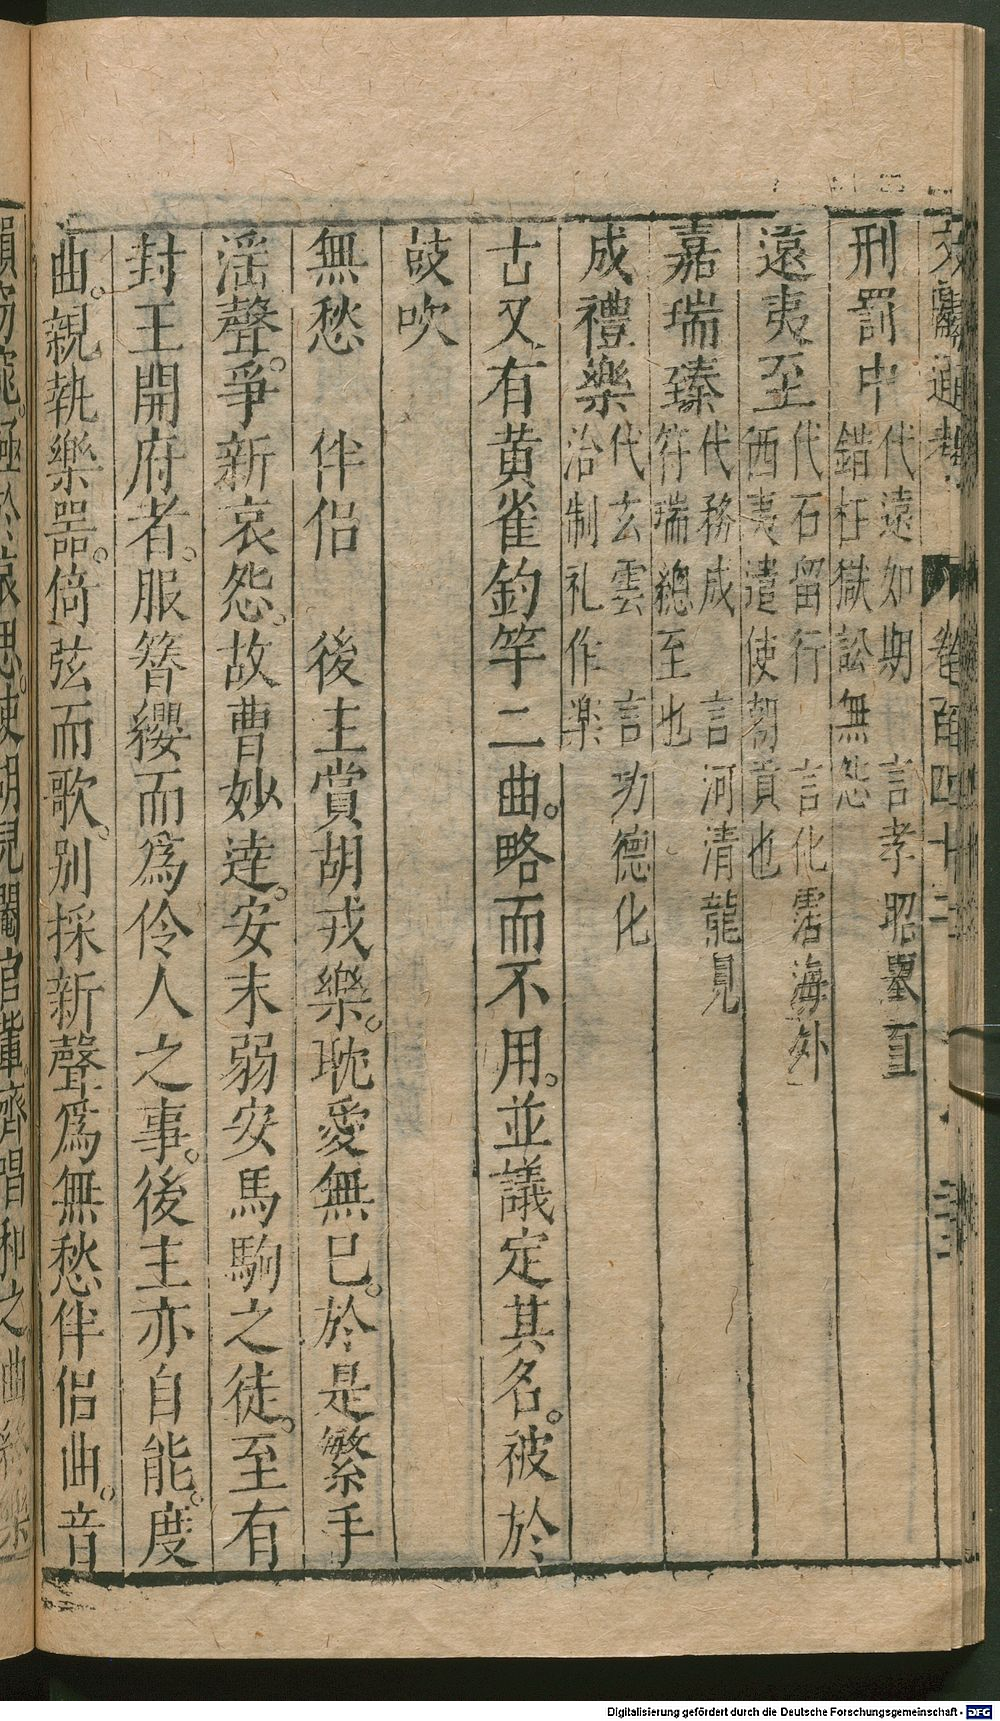 文獻通考 卷百四十二
刑罰中 代遠如期 言孝昭舉直
錯枉獄訟無怨
遠夷至 代石留行 言化霑海外
西夷遣使朝貢也
嘉瑞臻 代務成 言河清龍見
符瑞總至也
成禮樂 代玄雲 言功德化
洽制礼作楽
古又有黄雀釣竿二曲。略而不用。並議定其名。被於
鼓吹
無愁 伴侶 後主賞胡戎樂。耽愛無已。於是繁手
淫聲。爭新哀怨。故曹妙達。安未弱安馬駒之徒。至有
封王開府者。服簪纓而爲伶人之事。後主亦自能。度
曲。親執樂器。倚弦而歌。别採新聲爲無愁伴侶曲。音
韻窈窕。極於哀思。使胡兒閹官輩齊唱和之曲終樂
Digitalisierung gefördert durch die Deutsche Forschungsgemeinschaft - DFG